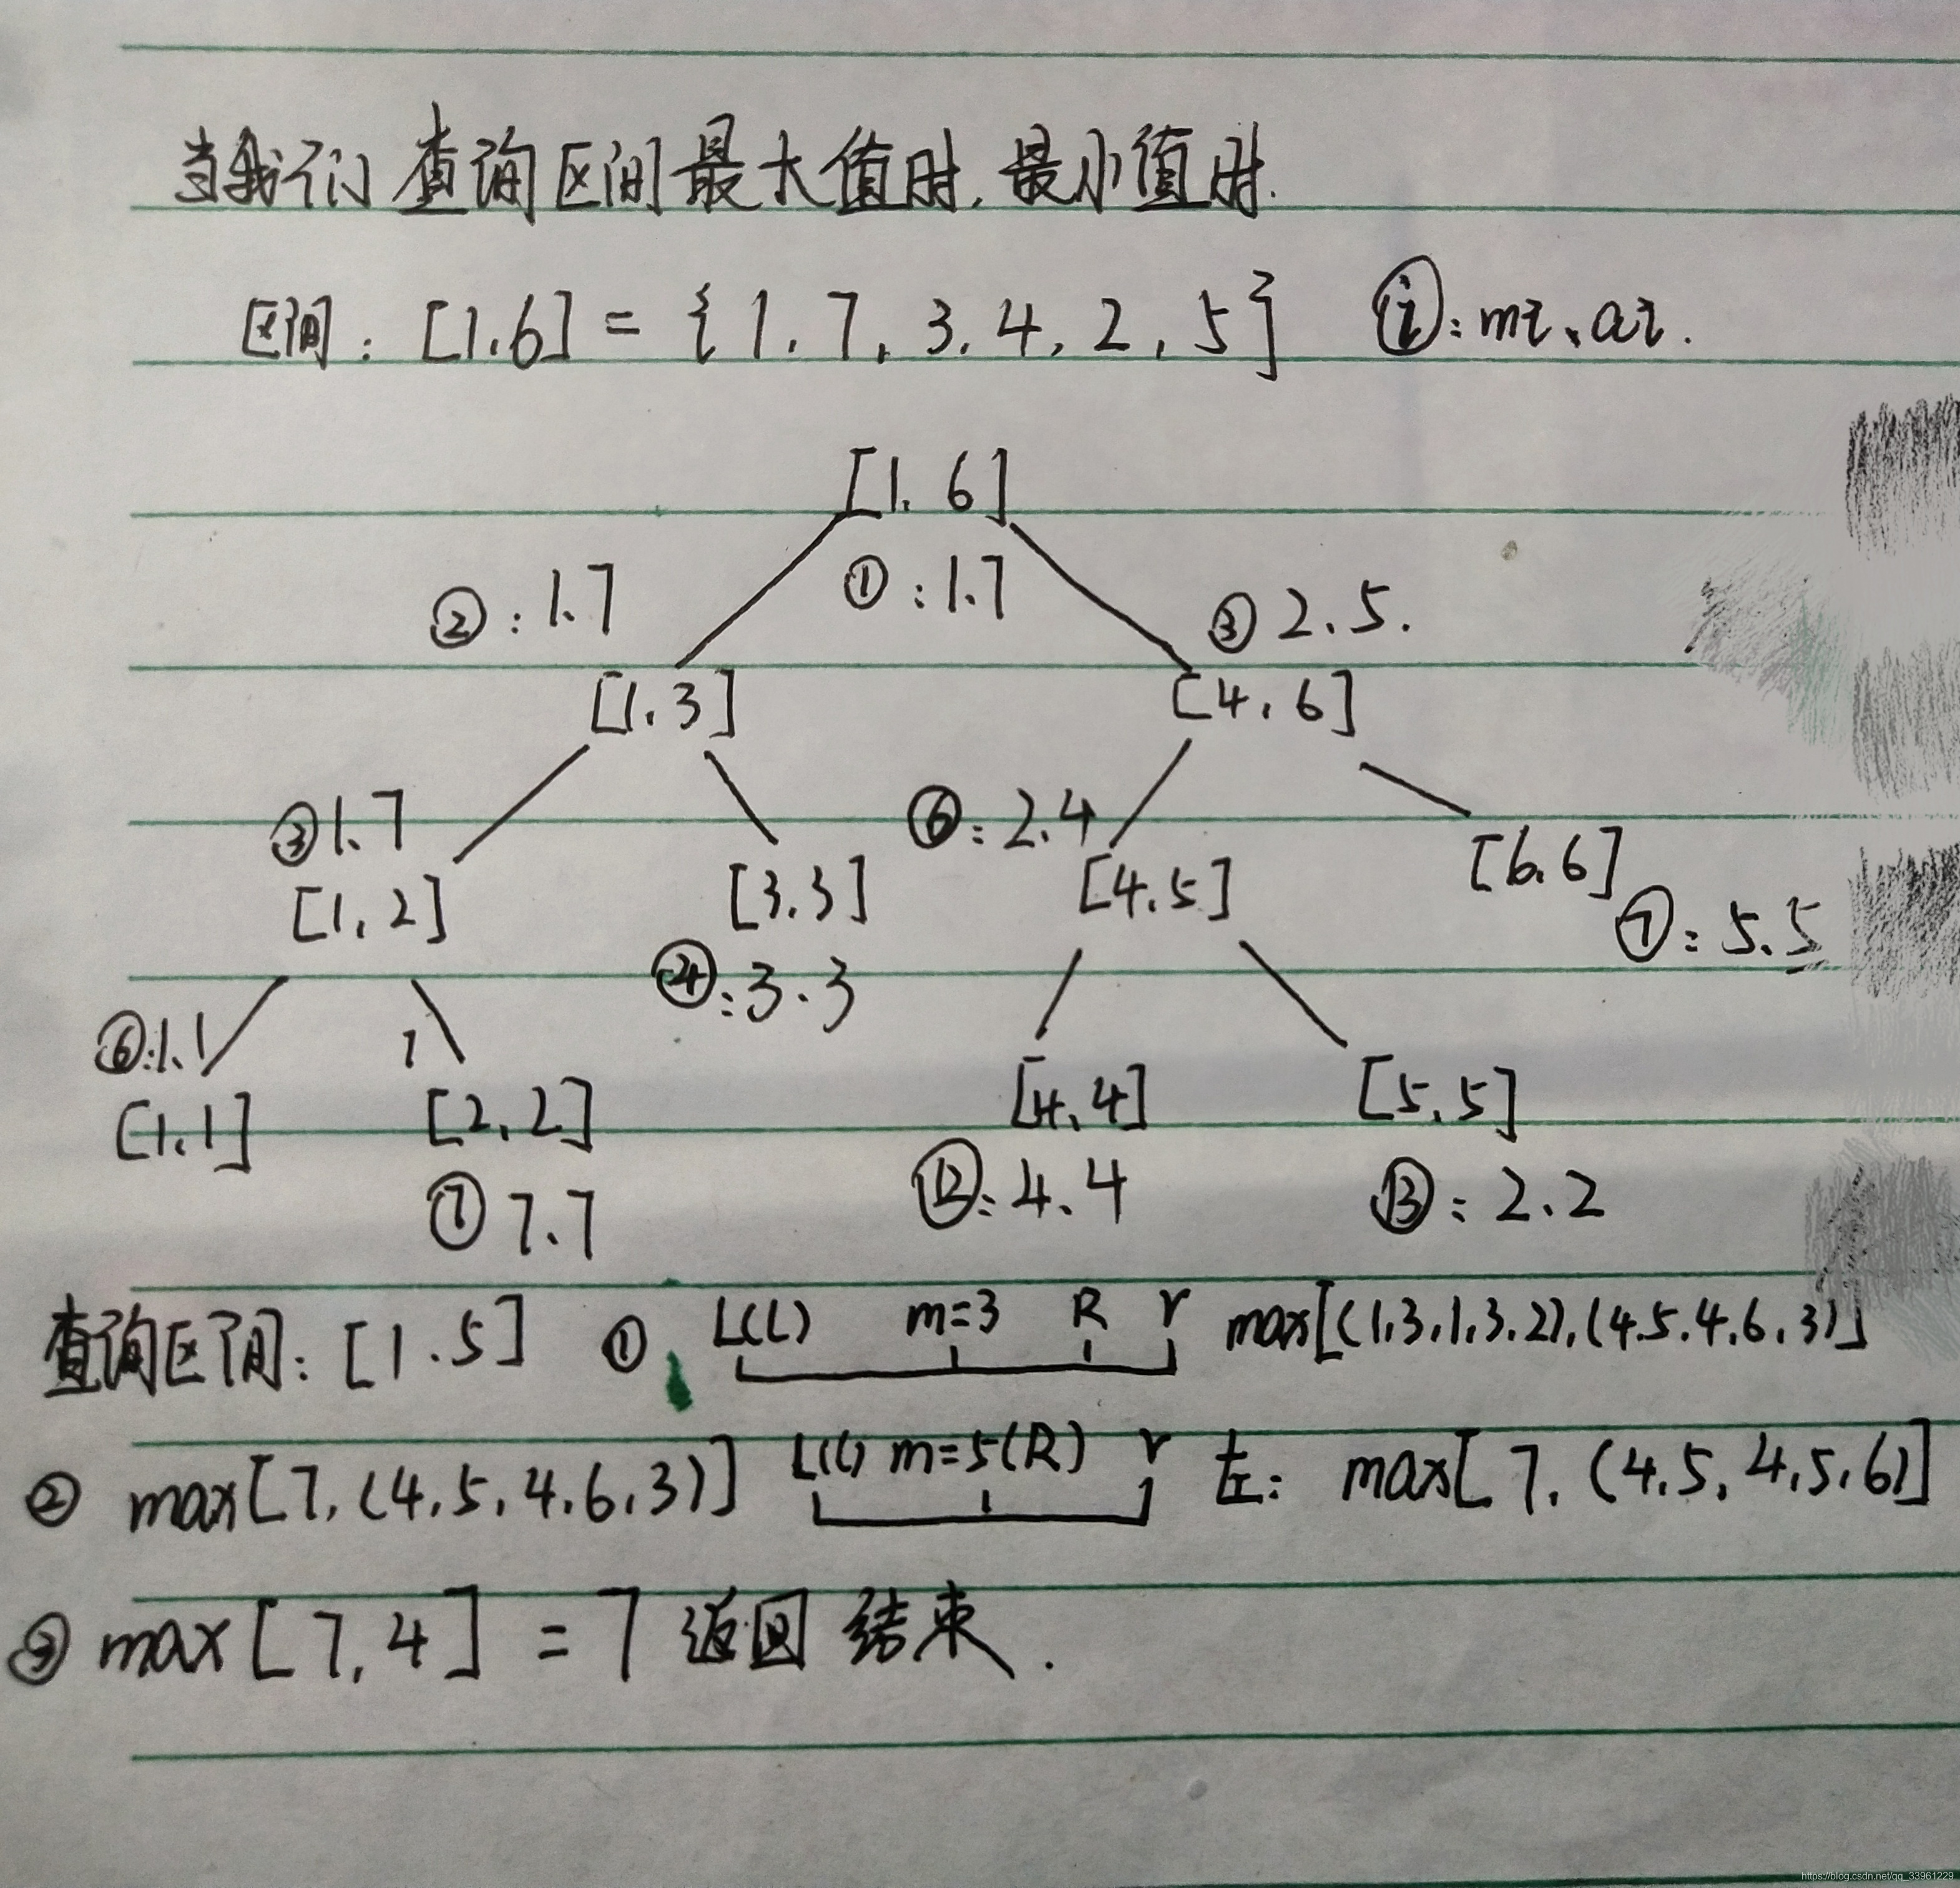 当我们查询区间最大值时.最小值时.
区间: [1.6] = {1.7,3.4,2,5} ⓘ:mi、ai.
[1.6]
②:1.7 ①:1.7 ③2.5.
[1.3] [4.6]
③1.7 ⑥:2.4
[1,2] [3.3] [4.5] [6.6]
④:3.3 ⑦:5.5
⑥:1.1 7
[1.1] [2,2] [4,4] [5,5]
⑦7.7 ⑫:4.4 ⑬:2.2
查询区间:[1.5] ① L(l) m=3 R r max[(1,3,1,3,2),(4.5.4,6,3)]
② max[7,(4,5,4,6,3)] L(l) m=5(R) r 左: max[7,(4,5,4,5,6)]
③ max[7,4] =7 返回 结束.
https://blog.csdn.net/qq_33961229